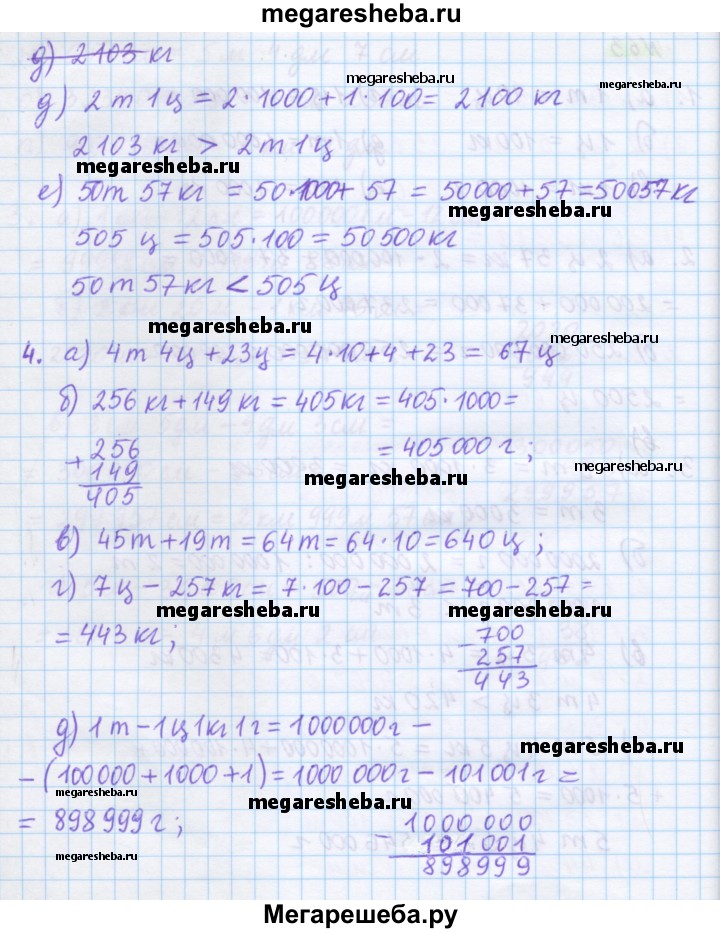 megaresheba.ru
д) 2103 кг
д) 2 т 1 ц = 2·1000 + 1·100 = 2100 кг
megaresheba.ru
megaresheba.ru
2103 кг > 2 т 1 ц
megaresheba.ru
megaresheba.ru
е) 50 т 57 кг = 50·1000 + 57 = 50000 + 57 = 50057 кг
megaresheba.ru
505 ц = 505·100 = 50500 кг
50 т 57 кг < 505 ц
megaresheba.ru
megaresheba.ru
4. а) 4 т 4 ц + 23 ц = 4·10 + 4 + 23 = 67 ц
б) 256 кг + 149 кг = 405 кг = 405·1000 =
= 405 000 г;
+ 256
149
405
megaresheba.ru
megaresheba.ru
в) 45 т + 19 т = 64 т = 64·10 = 640 ц;
г) 7 ц – 257 кг = 7·100 – 257 = 700 – 257 =
megaresheba.ru
megaresheba.ru
= 443 кг;
– 700
257
443
д) 1 т – 1 ц 1 кг 1 г = 1000 000 г –
megaresheba.ru
– (100 000 + 1000 + 1) = 1000 000 г – 101 001 г =
megaresheba.ru
megaresheba.ru
= 898 999 г;
– 1000 000
101 001
898999
megaresheba.ru
megaresheba.ru
Мегарешеба.ру